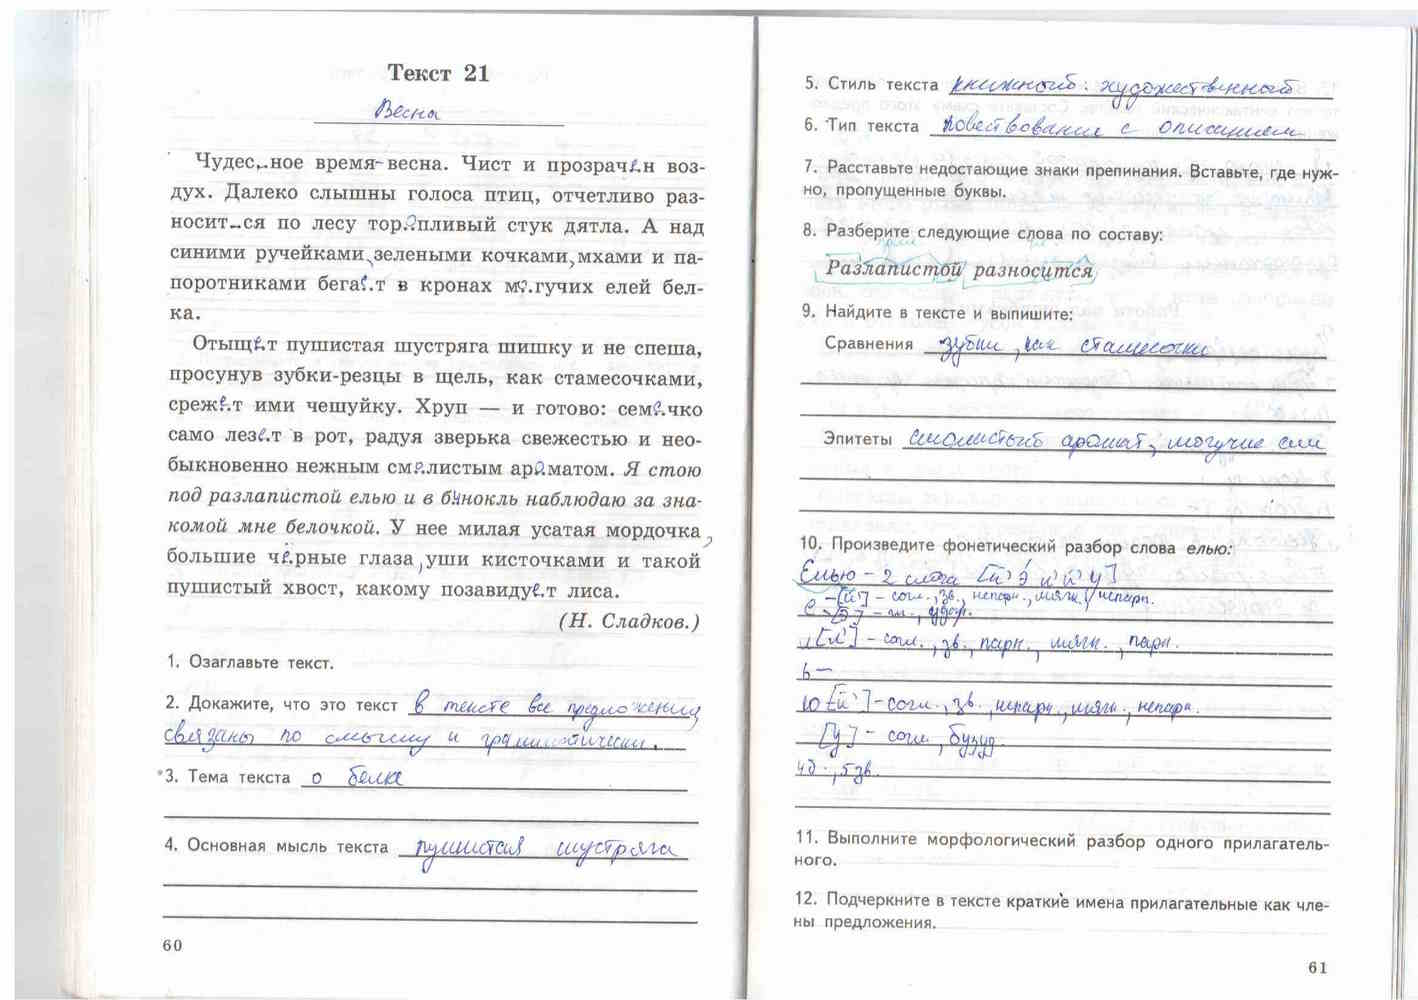 Текст 21
Весна
Чудес..ное время-весна. Чист и прозрачен воз-
дух. Далеко слышны голоса птиц, отчетливо раз-
носит..ся по лесу торопливый стук дятла. А над
синими ручейками, зелеными кочками, мхами и па-
поротниками бегает в кронах могучих елей бел-
ка.
Отыщет пушистая шустряга шишку и не спеша,
просунув зубки-резцы в щель, как стамесочками,
срежет ими чешуйку. Хруп — и готово: семечко
само лезет в рот, радуя зверька свежестью и нео-
быкновенно нежным смолистым ароматом. Я стою
под разлапистой елью и в бинокль наблюдаю за зна-
комой мне белочкой. У нее милая усатая мордочка,
большие чёрные глаза, уши кисточками и такой
пушистый хвост, какому позавидует лиса.
(Н. Сладков.)
1. Озаглавьте текст.
2. Докажите, что это текст в тексте все предложения
связаны по смыслу и грамматически.
3. Тема текста о белке
4. Основная мысль текста пушистая шустряга
60
5. Стиль текста книжный: художественный
6. Тип текста повествование с описанием
7. Расставьте недостающие знаки препинания. Вставьте, где нуж-
но, пропущенные буквы.
8. Разберите следующие слова по составу:
Разлапистой разносится
9. Найдите в тексте и выпишите:
Сравнения зубки, как стамесочки
Эпитеты смолистый аромат, могучие ели
10. Произведите фонетический разбор слова елью:
Елью - 2 слога
е -[й'] - согл., зв., непарн., мягк., непарн.
[э] - гл., удар.
л [л'] - согл., зв., парн., мягк., парн.
ь —
ю [й'] - согл., зв., непарн., мягк., непарн.
[у] - согл, безуд.
4б., 5зв.
11. Выполните морфологический разбор одного прилагатель-
ного.
12. Подчеркните в тексте краткие имена прилагательные как чле-
ны предложения.
61